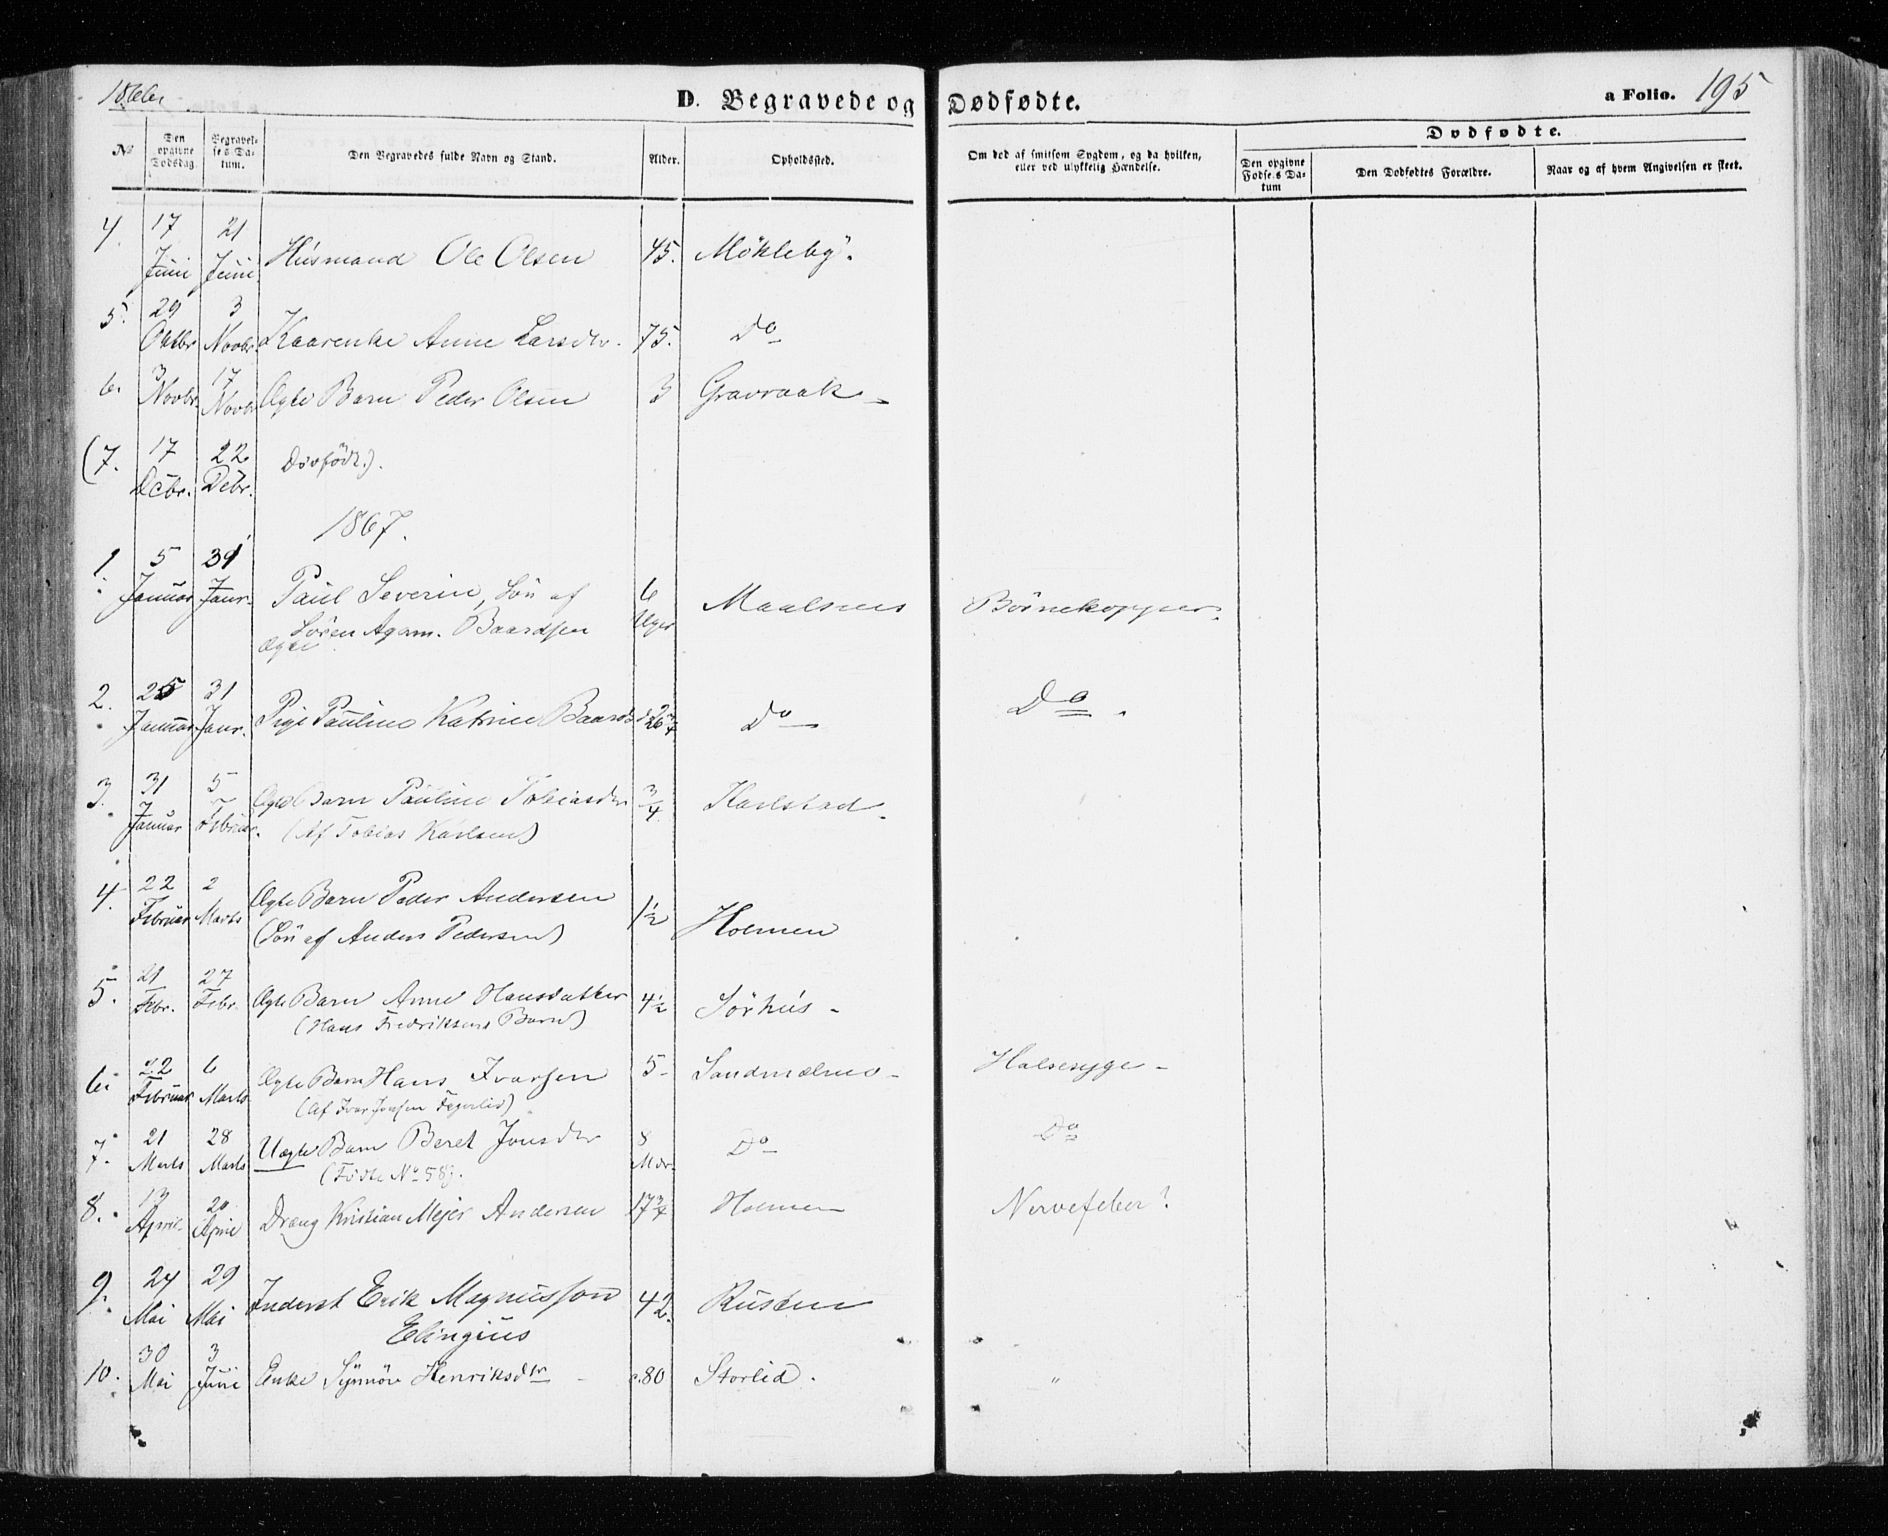 1866.
D. Begravede og Dødfødte.
a Folio. 195
№
Den opgivne Dødsdag.
Begravelses Datum.
Den Begravedes fulde Navn og Stand.
Alder.
Opholdssted.
Om død af smitsom Sygdom, og da hvilken, eller ved ulykkelig Hændelse.
Dødfødte.
Den opgivne Fødsels Datum
Den Dødfødtes Forældre.
Naar og af hvem Angivelsen er skeet.
4. 17 Juni 21 Juni Husmand Ole Olsen 45. Møkleby.
5. 29 Oktbr 3 Novbr. Kaarenke Anne Larsdtr. 75. Do
6. 3 Novbr. 17 Novbr Ægte Barn Peder Olsen 3 Gravraak
(7. 17 Decbr. 22 Debr. Dødfødt.).
1867.
1. 5 Januar 31 Janr. Paul Severin, Søn af 6 Uger Maalsnes Børnekopper.
Søren Agam. Baardsen
Ægte
2. 25 Januar 31 Janr. Pige Pauline Katrine Baardsd 26 3/4 Do Do
3. 31 Januar 5 Februar. Ægte Barn Pauline Tobiasdtr 3/4 Karlstad
(Af Tobias Karlsen)
4. 22 Februar 2 Marts Ægte Barn Peder Andersen 1½ Holmen
(Søn af Anders Pedersen)
5. 21 Febr. 27 Febr. Ægte Barn Anne Hansdatter 4½ Sørhus
(Hans Fredriksens Barn)
6. 22 Februar 6 Marts Ægte Barn Hans Ivarsen 5 Sandmælmo Halsesyge
(Af Ivar Jonsen Fagerlid)
7. 21 Marts 28 Marts Uægte Barn Beret Jonsdtr 8 Mdr. Do Do
(Fødte No 58).
8. 13 April 20 April Dreng Kristian Mejer Andersen 17 3/4 Holmen Nervefeber?
9. 24 Mai 29 Mai Inderst Erik Magnusson 42. Rusten
Elingius
10. 30 Mai 3 Juni Enke Synnøv Henriksdtr c. 80 Storlid. "